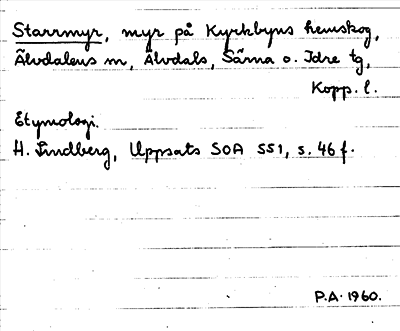 Starrmyr, myr på Kyrkbyns hemskog,
Älvdalens sn, Älvdals, Särna o. Idre tg,
Kopp. l.
Etymologi.
H. Lindberg, Uppsats SOA 551, s. 46 f.
P.A. 1960.